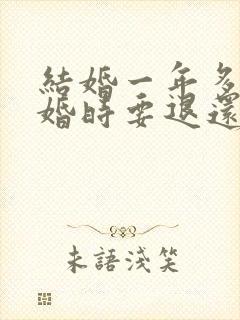 結婚一年多
婚時要退還
未語淺笑